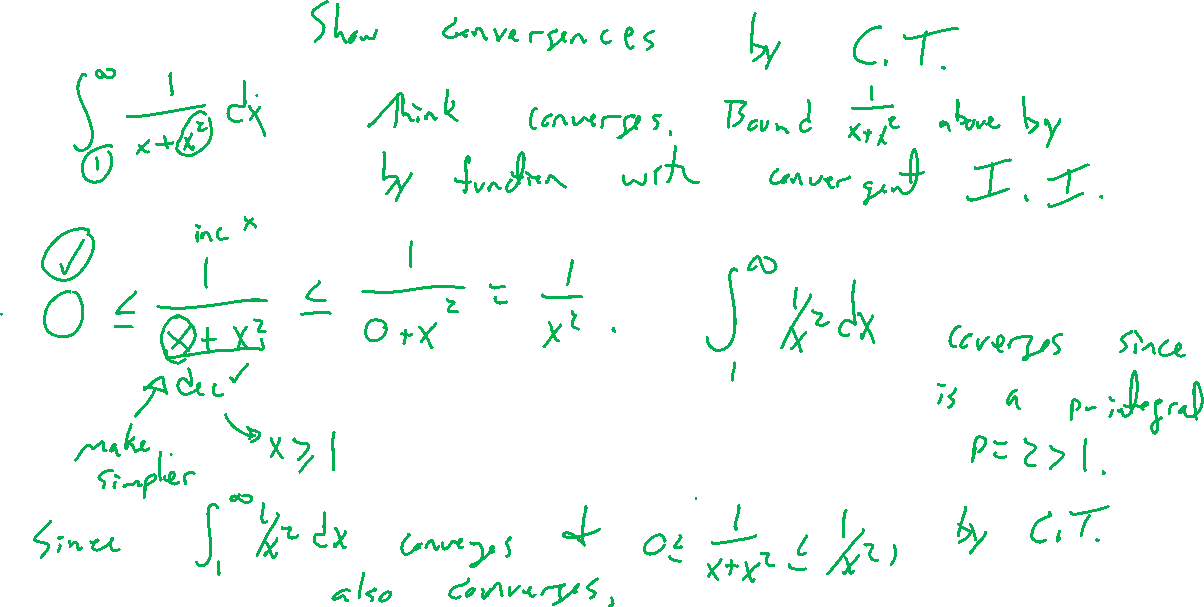 Show convergences by C.T.
∫₁^∞ 1/(x+x²) dx think converges. Bound 1/(x+x²) above by
by function with convergent I.I.
inc x
✓ 0 ≤ 1/(x+x²) ≤ 1/(0+x²) = 1/x². ∫₁^∞ 1/x² dx coverges since
dec ✓ is a p-integral
make x ≥ 1 p=2>1.
simplier
Since ∫₁^∞ 1/x² dx converges & 0 ≤ 1/(x+x²) ≤ 1/x², by C.T.
also converges.